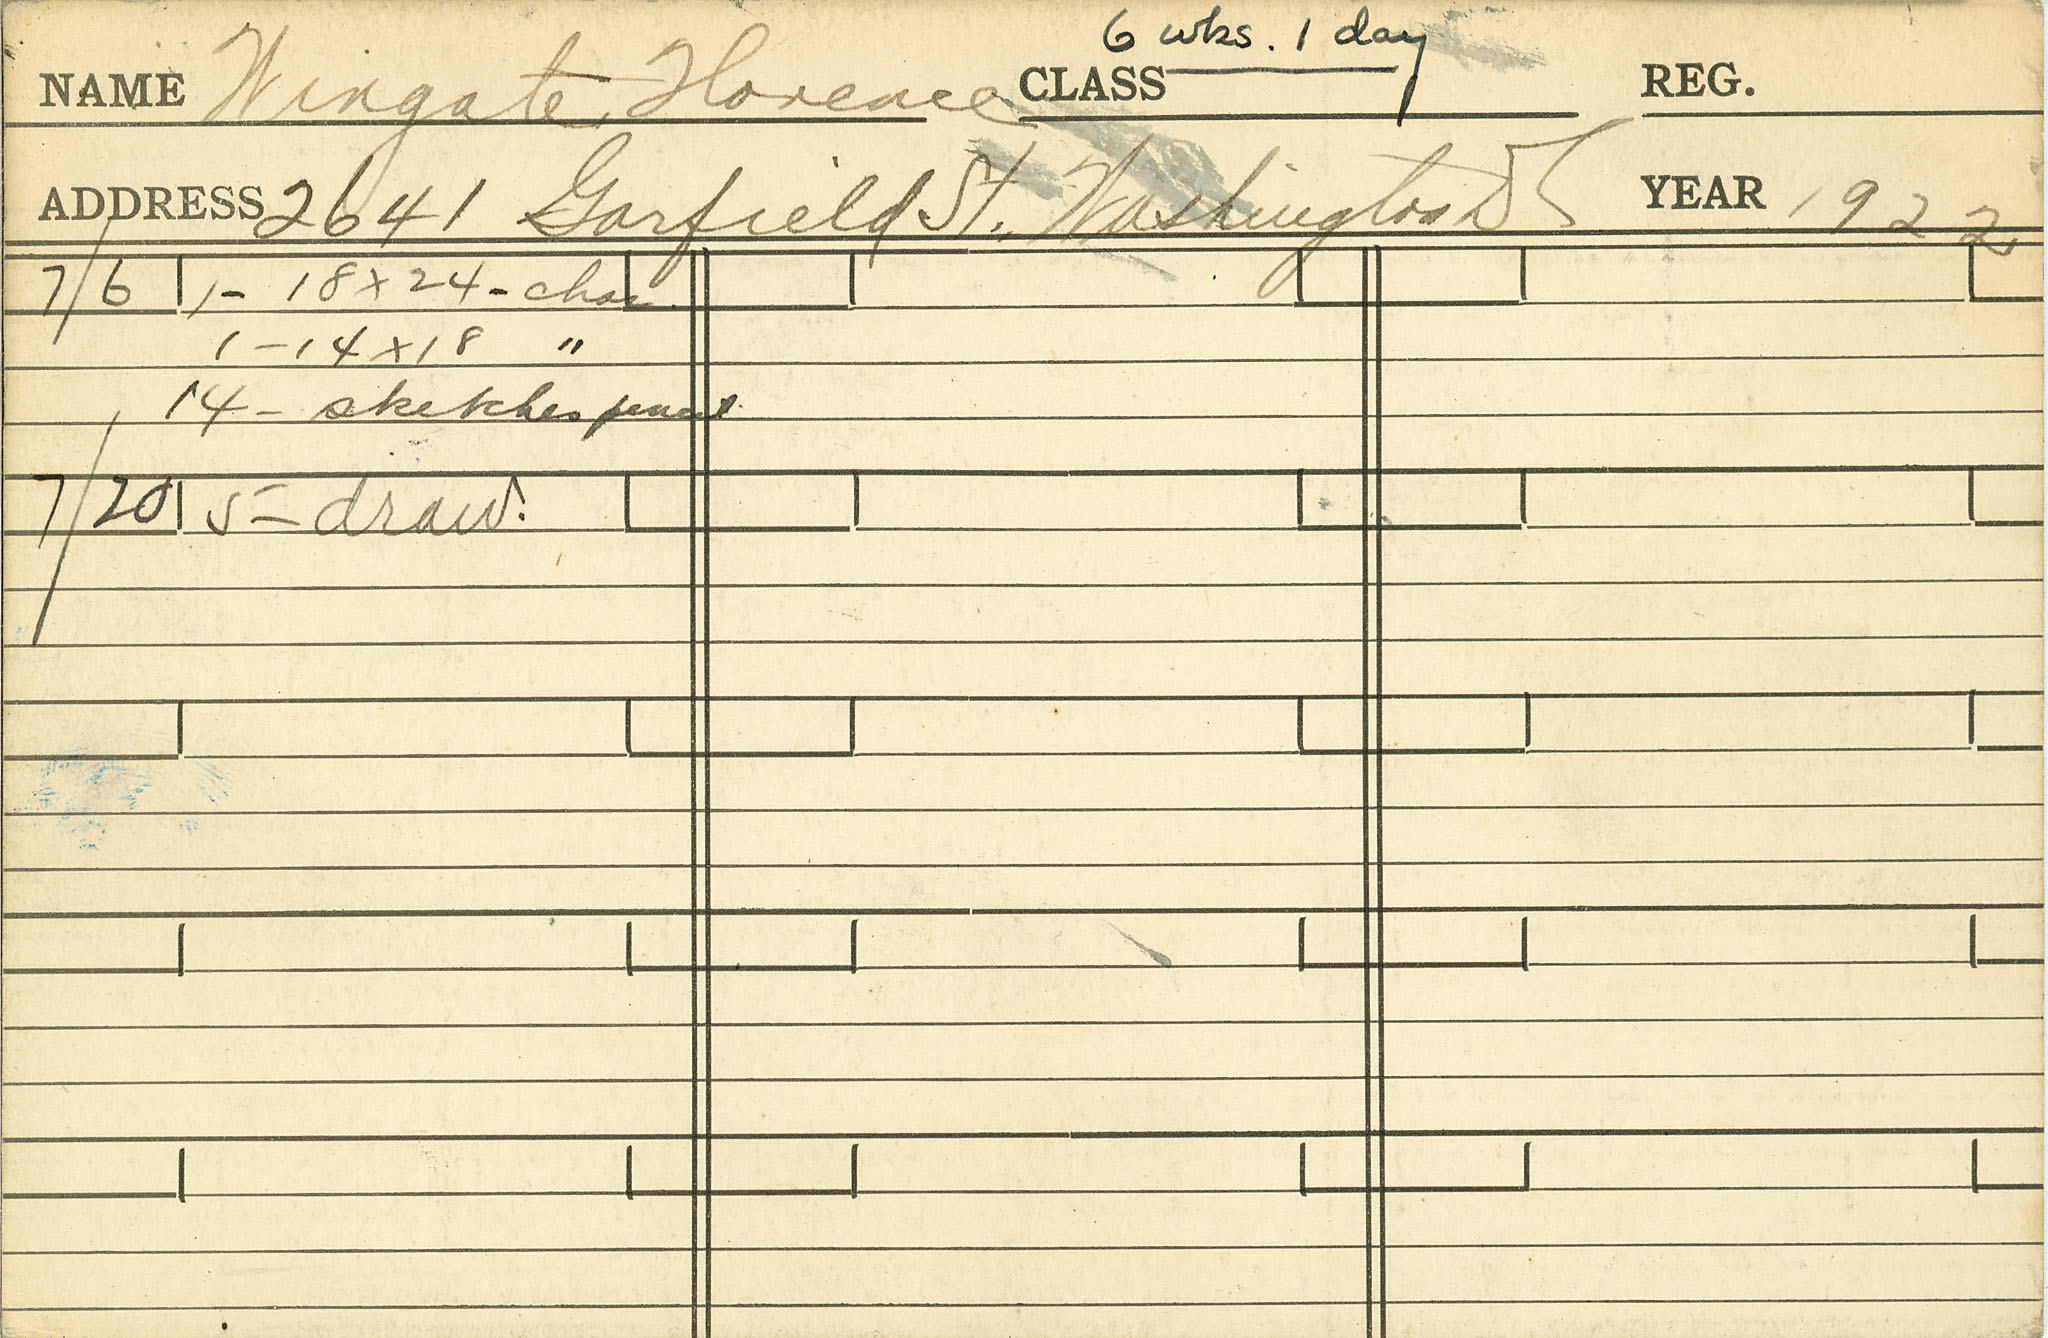 6 wks. 1 day
NAME Wingate, Florence CLASS REG.
ADDRESS 2641 Garfield St., Washington DC YEAR 1922
7/6 1- 18x24 - char.
1 - 14x18 "
14 - sketches pencil
7/20 5 - draw.